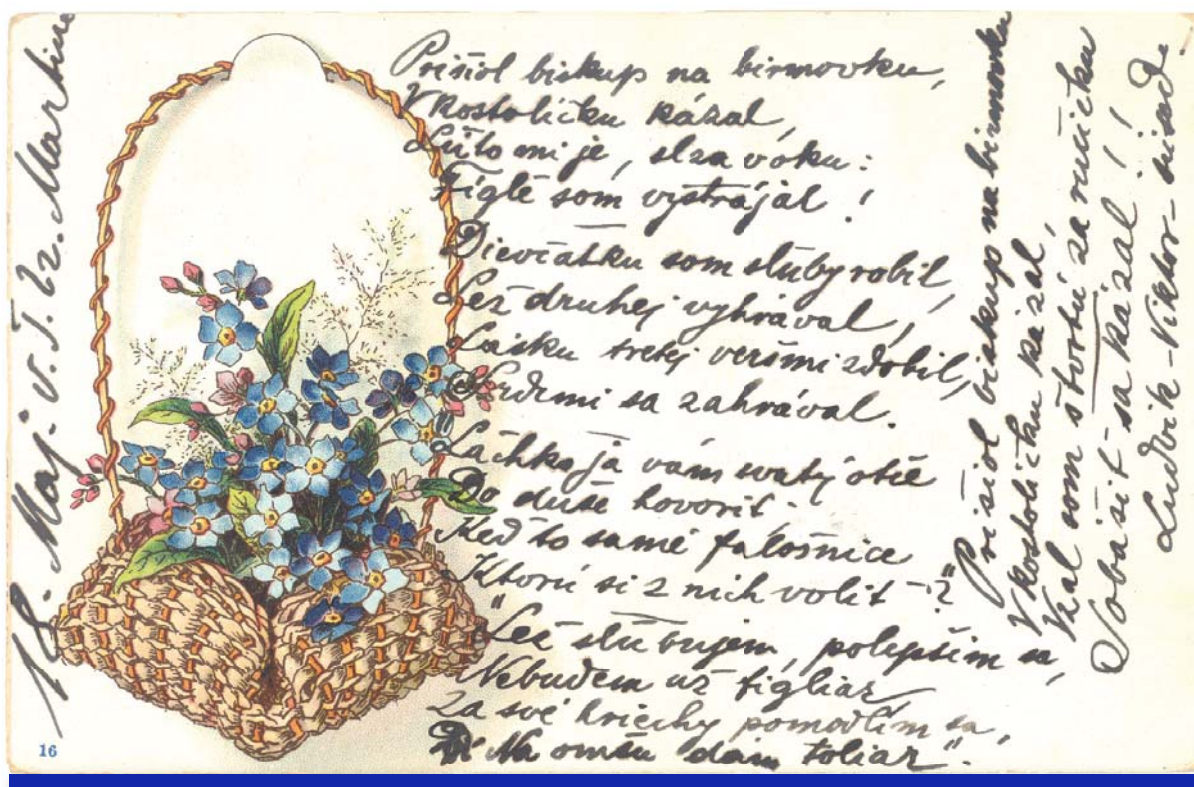 18. Maj. v. T. Sz. Martine
Prišiol biskup na birmovku,
V kostolíčku kázal,
Lúto mi je, slza v oku:
Figle som vystrájal!
Dievčatku som sluby robil,
Lež druhej vyhrával,
Lásku tretej veršmi zdobil,
sa zahrával.
Lachko ja vám svatý otče
Do duše hovorit
Keď to samé falošnice
Ktorú si z nich volit -?"
"Lež slubujem, polepším sa,
Nebudem už figliar,
Za své hriechy pomodlím sa,
Na omšu dám toliar".
Prišiol biskup na birmovku
V kostolíčku kázal,
Vzal som štvrtú za ručičku
Sobášit sa kázal!!
Ludvik - Viktor -
16